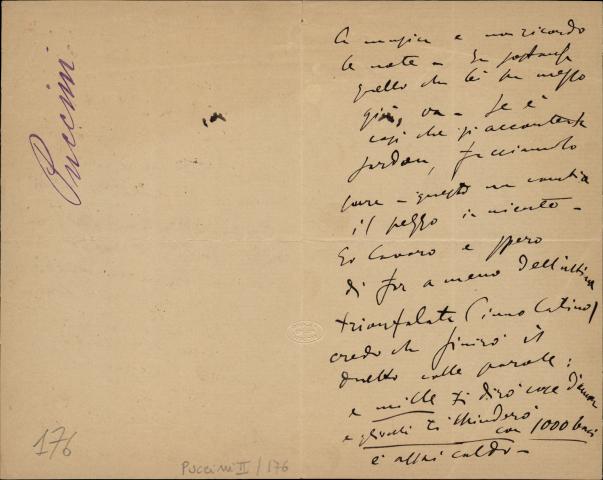 Puccini
176
Puccini II / 176
la musica e non ricordo
le note - In sostanza
quello che lei ha messo
giù, va - Se è
così che si accontenta
Jordan, facciamolo
pure - questo non cambia
il pezzo in niente -
Io lavoro e spero
di far a meno dell'ultima
trionfalata (inno latino)
credo che finirò il
duetto colle parole:
e mille ti dirò cose d'amor
e gli occhi ti chiuderò
con 1000 baci
è assai caldo -